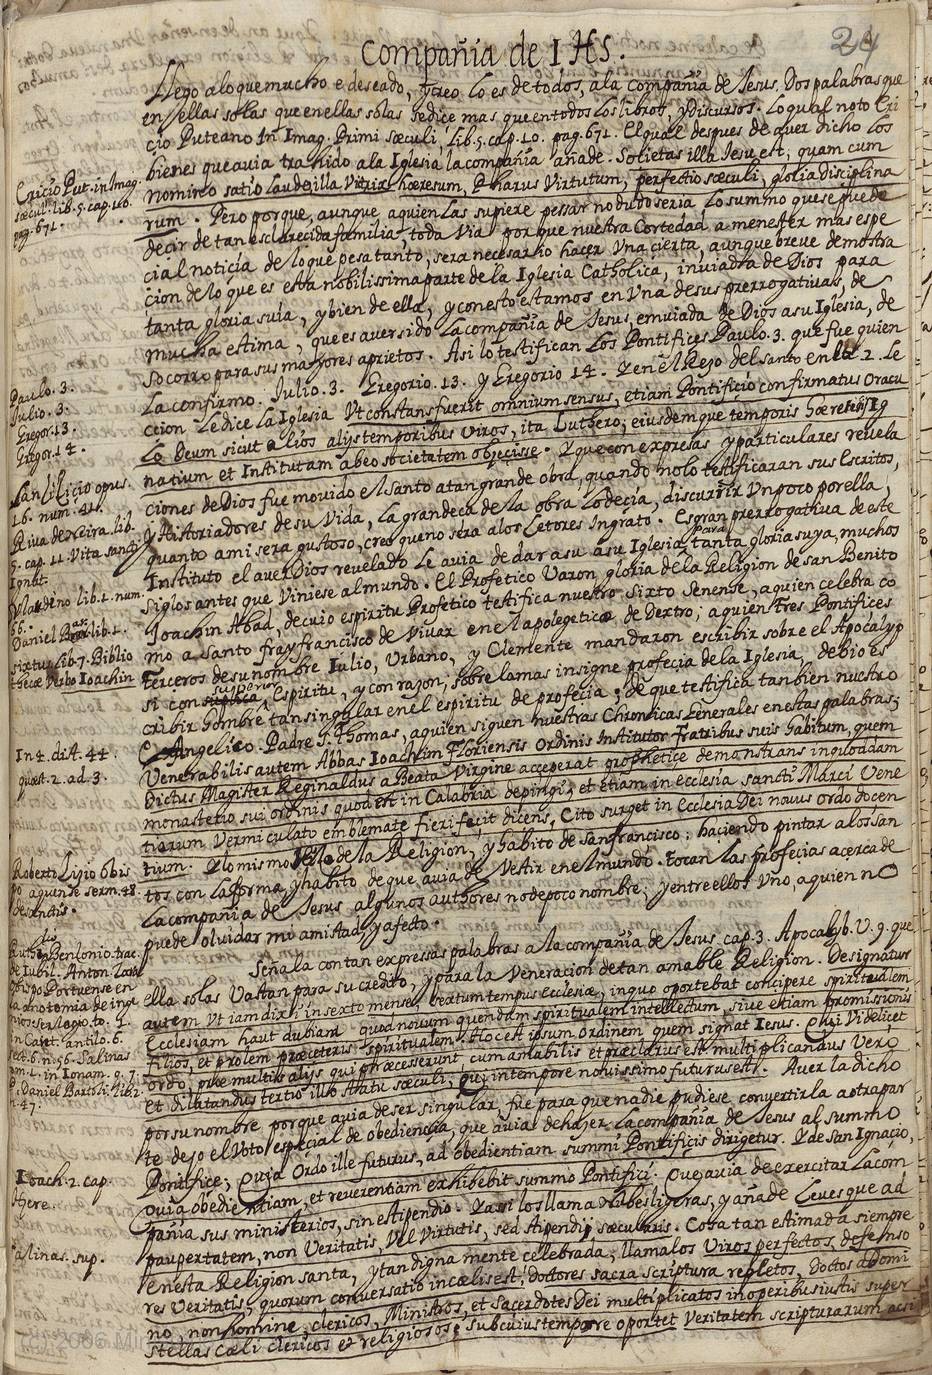 24
Compañia de IHS.
Llego a lo que mucho e deseado, y creo lo es de todos, a la compañia de Jesus. Dos palabras que
en sellas solas que en ellas solas se dice mas que en todos los libros, y discursos. Lo qual noto Eri
cio Puteano In Imag. Primi sæculi, lib. 5. cap. 10. pag. 671. El qual despues de aver dicho los
bienes que avia trahido a la Iglesia la compañia añade. Solietas illa Iesu est, quam cum
nomino satio laude illa Vitrix hæresum, Pharus Virtutum, perfectio sæculi, gloria disciplina
rum. Pero porque, aunque a quien las supiere pessar no dudo seria lo summo que se puede
decir de tan esclarecida familia, toda via porque nuestra Cortedad a menester mas espe
cial noticia de lo que pesa tanto, sera necesario hacer Una cierta, aunque breve demostra
cion de lo que es esta nobilissima parte de la Iglesia Catholica, inviada de Dios para
tanta gloria suia, y bien de ella, y con esto estamos en Una de sus prerrogativas, de
mucha estima, que es aver sido la compañia de Jesus, emviada de Dios a su Iglesia, de
socorro para sus mayores aprietos. Asi lo testifican Los Pontifices Paulo. 3. que fue quien
la confirmo. Julio. 3. Gregorio. 13. y Gregorio 14. Y en el Rezo del santo en la 2. Le
ccion le dice la Iglesia Vt constans fuerit omnium sensus, etiam Pontificio confirmatus Oracu
lo Deum sicut alios alijs temporibus viros, ita Luthero, eiusdemque temporis hæreticis Ig
natium et Institutam ab eo societatem objecisse. Y que con expresas y particulares revela
ciones de Dios fue movido el santo a tan grande obra, quando no lo testificaran sus Escritos,
y Historiadores de su Vida, la grandeça de la obra lo decia, discurrir Un poco por ella,
quanto a mi sera gustoso, creo que no sera a los Letores Ingrato. Es gran prerrogativa de este
Instituto el aver Dios revelado le avia de dar a su a su Iglesia, para tanta gloria suya, muchos
siglos antes que Viniese al mundo. El Profetico Varon, gloria de la Religion de san Benito
Joachin Abad, de cuio espiritu Profetico testifica nuestro Sixto Senense, a quien celebra co
mo a santo fray francisco de Vivar en el apolegeticæ de Dextro; a quien tres Pontifices
Terceros de su nombre Julio, Urbano, y Clemente mandaron escribir sobre el Apocalyp
si con superior Espiritu, y con razon, sobre la mas insigne profecia de la Iglesia, debio es
cribir hombre tan singular en el espiritu de profecia; de que testifica tanbien nuestro
Angelico Padre S. Thomas, a quien siguen nuestras Chronicas Generales en estas palabras;
Venerabilis autem Abbas Ioachim Floriensis Ordinis Institutor fratribus suis habitum, quem
Dictus Magister Reginaldus a Beata Virgine acceperat prophetice demonstrans in quoddam
monasterio sui ordinis quod est in Calabria depingi, et etiam in ecclesia sancti Marci Vene
tiarum Vermiculato emblemate fieri fecit dicens, Cito surget in Ecclesia Dei novus ordo docen
tium. Y lo mismo de la Religion, y habito de san francisco; haciendo pintar a los san
tos con la forma, y habito de que avia de Vestir en el mundo. tocan las profecias acerca de
la compañia de Jesus algunos authores no de poco nombre; y entre ellos Uno, a quien no
puede olvidar mi amistad, y afecto.
Señala con tan expressas palabras a la compañia de Jesus cap. 3. Apocalyb. V. 9. que
ella solas Vastan para su credito, y para la Veneracion de tan amable Religion. Designatur
autem Vt iam dixi in sexto mense, sextum tempus Ecclesiæ, in quo oportebat concipere spiritualem
Ecclesiam haut dubium quod novum quendam spiritualem intellectum, sive etiam promissionis
filios, et prolem præceteris spiritualem. Hoc est ipsum Ordinem quem signat Iesus. Qui Videlicet
ordo, præ multis alijs qui præcesserunt cum amabilis et præclarus est multiplicandus vero
et dilatandus tertio illo statu sæculi; qui in tempore novissimo futurus est. Aver la dicho
por su nombre porque avia de ser singular, fue para que nadie pudiese convertirla a otra par
te dejo el Voto especial de obediencia, que avia de hacer la compañia de Jesus al summo
Pontifice; Quia Ordo ille futurus, ad obedientiam summi Pontificis dirigetur. Y de san Ignacio,
Quia obedientiam, et reverentiam exhibebit summo Pontifici. Que avia de exercitar la com
pañia sus ministerios, sin estipendio. Y asi los llama nubes ligeras, y añade Leves que ad
paupertatem, non Veritatis, Vel Virtutis, sed stipendij sæcularis. Cosa tan estimada siempre
en esta Religion santa, y tan digna mente celebrada; llamalos viros perfectos, defenso
res Veritatis, quorum conversatio in cælis est, doctores sacra scriptura repletos, Doctos a Domi
no, non homine clericos, Ministros, et sacerdotes Dei multiplicatos in operibus iustis super
stellas Cæli clericos et religiosos; sub cuius tempore oportet Veritatem scripturarum acsi
Ericio Put. in Imag.
sæculi. lib. 5. cap. 10.
pag. 671.
Paulo. 3.
Julio. 3.
Gregor. 13.
Gregor. 14.
San Licio opus.
16. num. 41.
Riva deneira. lib.
5. cap. 11. Vita sancti
Ignat.
lib. 1. num.
66.
Daniel lib. 1.
sixtus lib. 7. Biblio
thecæ Verbo Ioachin
In 4. dist. 44.
quæst. 2. ad 3.
Roberto Licio Obis
po aquense serm. 48.
de sanctis.
Benlonio. trac.
de Iubil. Anton.
obispo Portuense en
la anotomia de ingl
in Capit. antilo. 6.
sect. 6. n. 56. Salinas
tom. 1. in Ionam. q. 7.
P. Daniel Bartoli. lib. 2.
n. 47.
Ioach. 2. cap.
Here.
Salinas. sup.